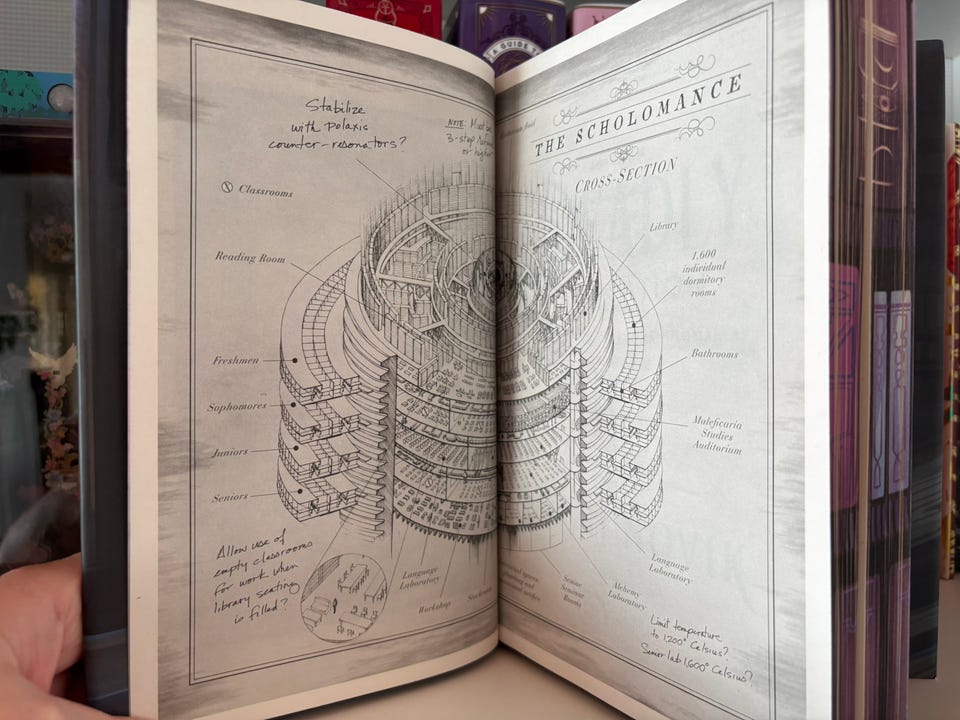 A GUIDE TO
Stabilize
with polaxis
counter-resonators?
NOTE: Must use
3-step
or higher
Classrooms
Reading Room
Freshmen
Sophomores
Juniors
Seniors
Allow use of
empty classrooms
for work when
library seating
is filled?
Language
Laboratory
Workshop
THE SCHOLOMANCE
CROSS-SECTION
Library
1,600
individual
dormitory
rooms
Bathrooms
Maleficaria
Studies
Auditorium
Language
Laboratory
Alchemy
Laboratory
Senior
Seminar
Rooms
Limit temperature
to 1,200° Celsius?
Senior lab 1,600° Celsius?